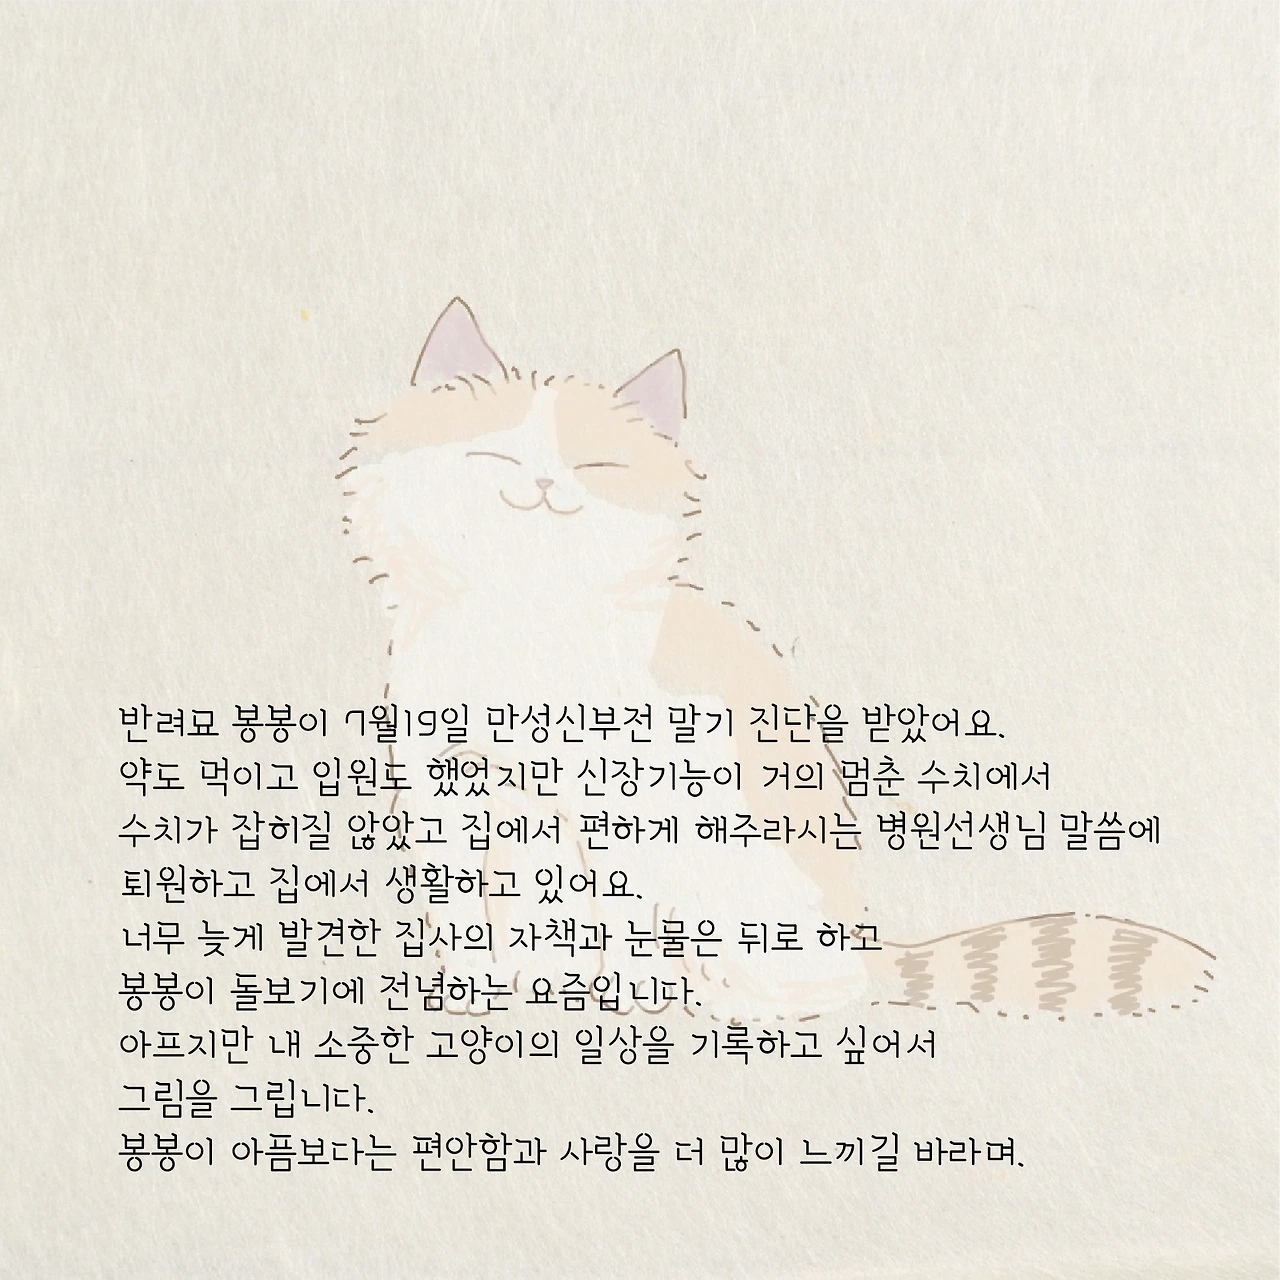 반려묘 봉봉이 7월19일 만성신부전 말기 진단을 받았어요.
약도 먹이고 입원도 했었지만 신장기능이 거의 멈춘 수치에서
수치가 잡히질 않았고 집에서 편하게 해주라시는 병원선생님 말씀에
퇴원하고 집에서 생활하고 있어요.
너무 늦게 발견한 집사의 자책과 눈물은 뒤로 하고
봉봉이 돌보기에 전념하는 요즘입니다.
아프지만 내 소중한 고양이의 일상을 기록하고 싶어서
그림을 그립니다.
봉봉이 아픔보다는 편안함과 사랑을 더 많이 느끼길 바라며.